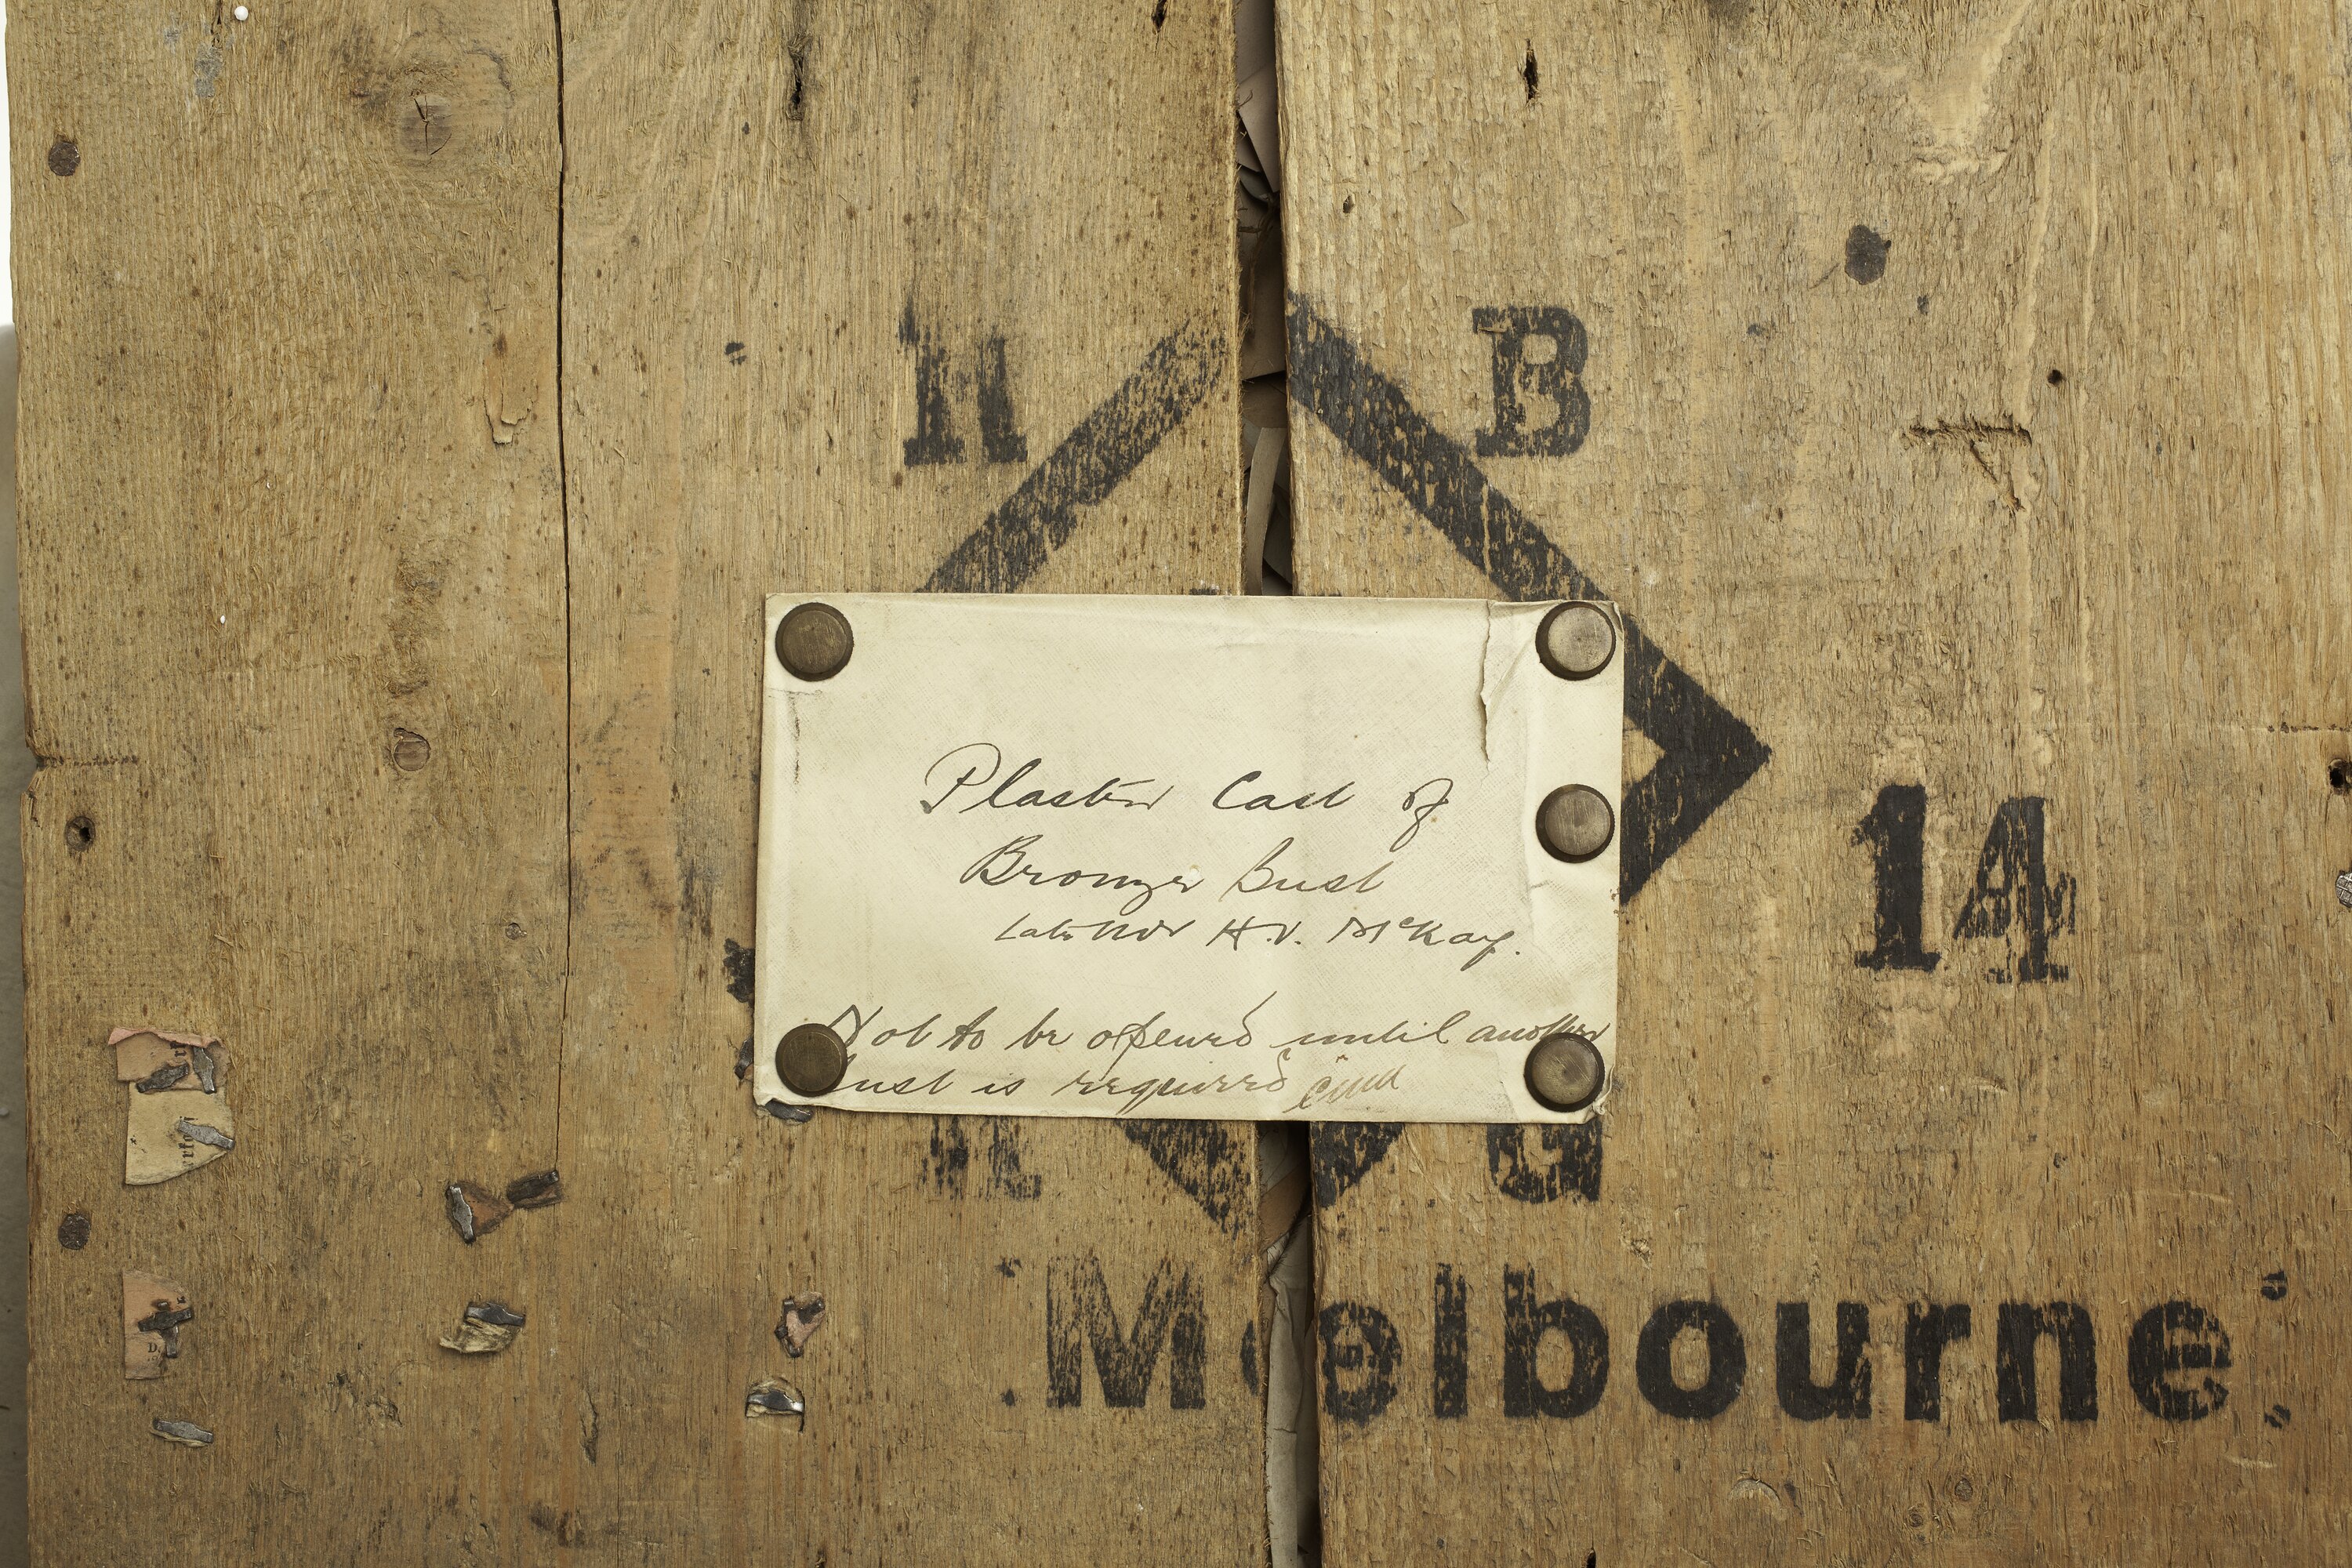 H B
14
Plaster Cast of
Bronze Bust
Late Mr H.V. McKay.
Not to be opened until another
bust is required
R G
Melbourne